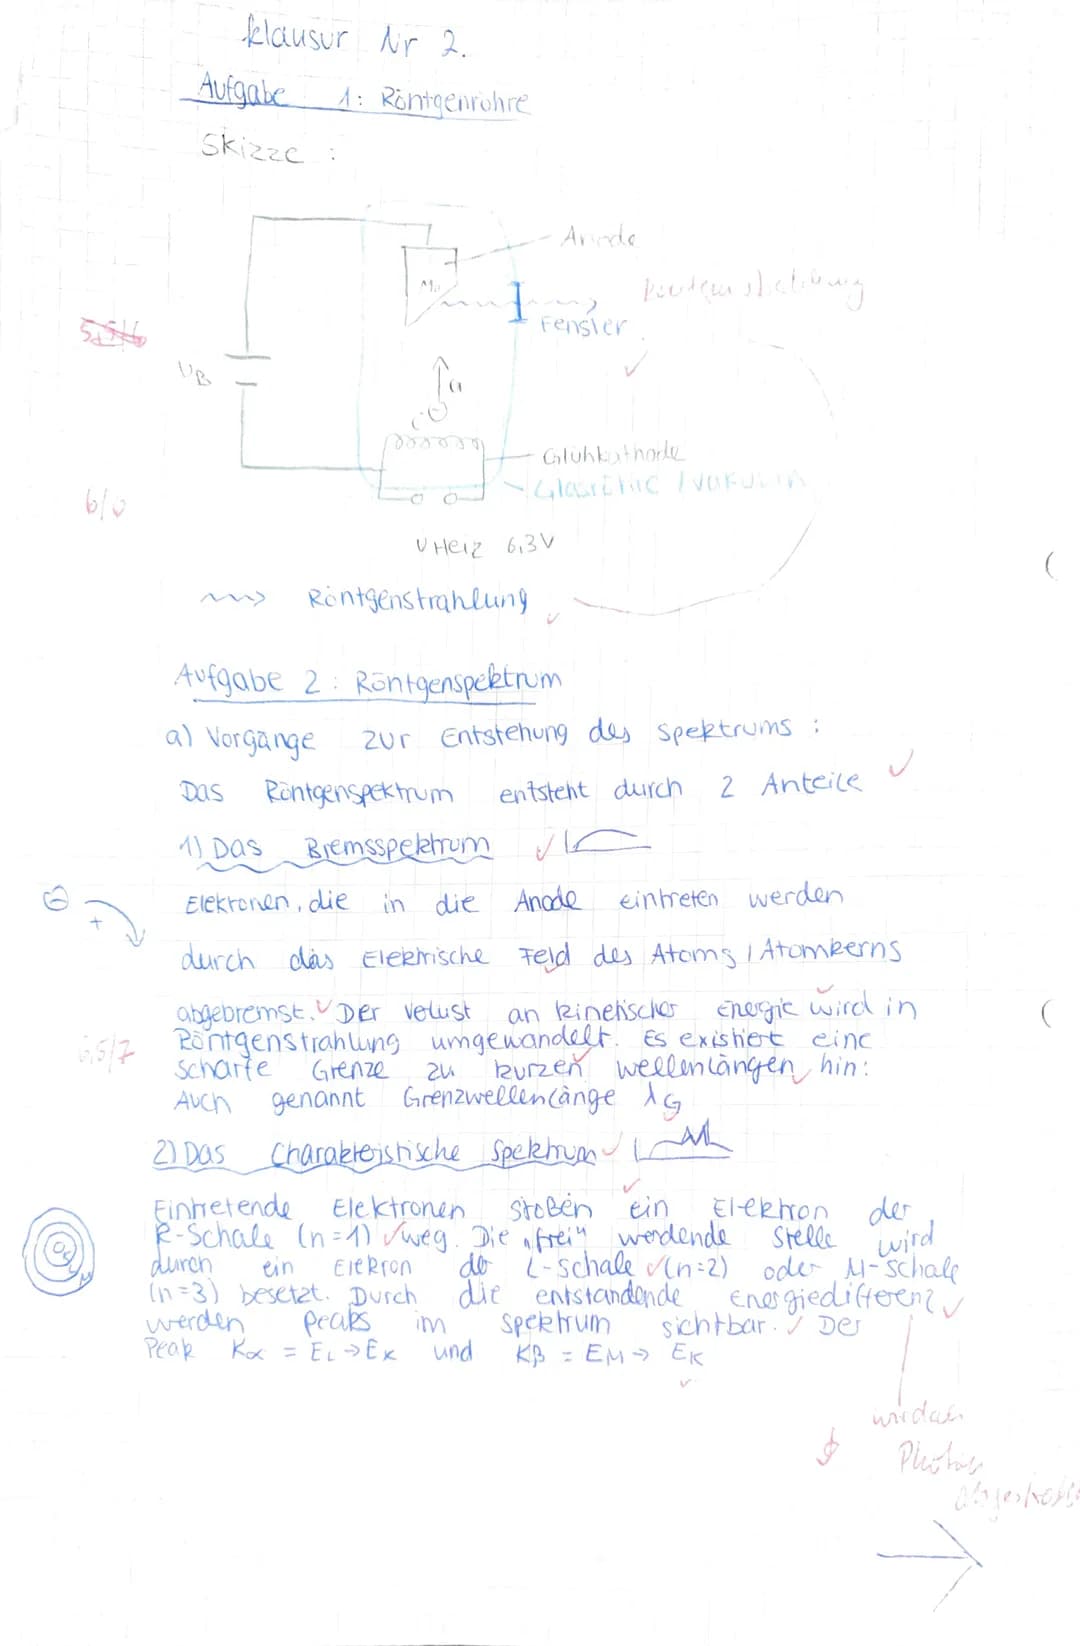 klausur Nr 2.
Aufgabe 1: Röntgenröhre
Skizze :
Anode
Mo
Röntgenstrahlung
Fenster
UB
a
Glühkathode
Glasröhre / Vakuum
6/
UHeiz 6,3V
Röntgenstrahlung
Aufgabe 2: Röntgenspektrum
a) Vorgänge zur Entstehung des Spektrums :
Das Röntgenspektrum entsteht durch 2 Anteile
1) Das Bremsspektrum
Elektronen, die in die Anode eintreten werden
durch das Elektrische Feld des Atoms / Atomkerns
abgebremst. Der Velust an kinetischer Energie wird in
Röntgenstrahlung umgewandelt. Es existiert eine
scharfe Grenze zu kurzen wellenlängen hin:
Auch genannt Grenzwellenlänge λG
6,5/7
2) Das Charakteristische Spektrum
Eintretende Elektronen stoßen ein Elektron der
K-Schale (n=1) weg. Die "frei" werdende Stelle wird
durch ein Elekron der L-Schale (n=2) oder M-Schale
(n=3) besetzt. Durch die entstandende Energiedifferenz
werden peaks im Spektrum sichtbar. Der
Peak Kα = EL → EK und Kβ = EM → EK
Photon